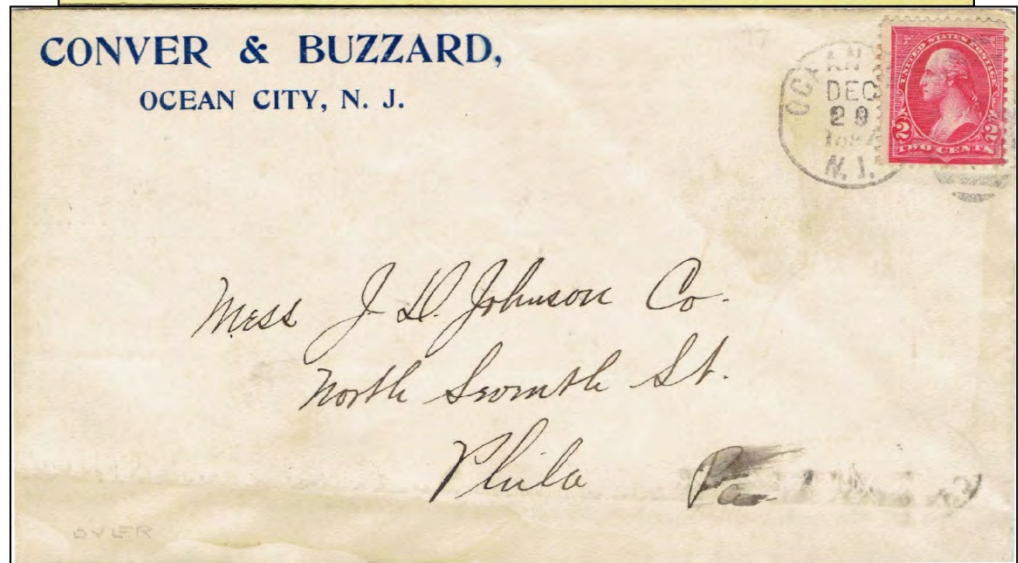 CONVER & BUZZARD,
OCEAN CITY, N. J.
OCEAN
DEC
29
N. J.
UNITED STATES POSTAGE
2 2
TWO CENTS
Mess J. D. Johnson Co.
North Seventh St.
Phila Pa
OVER